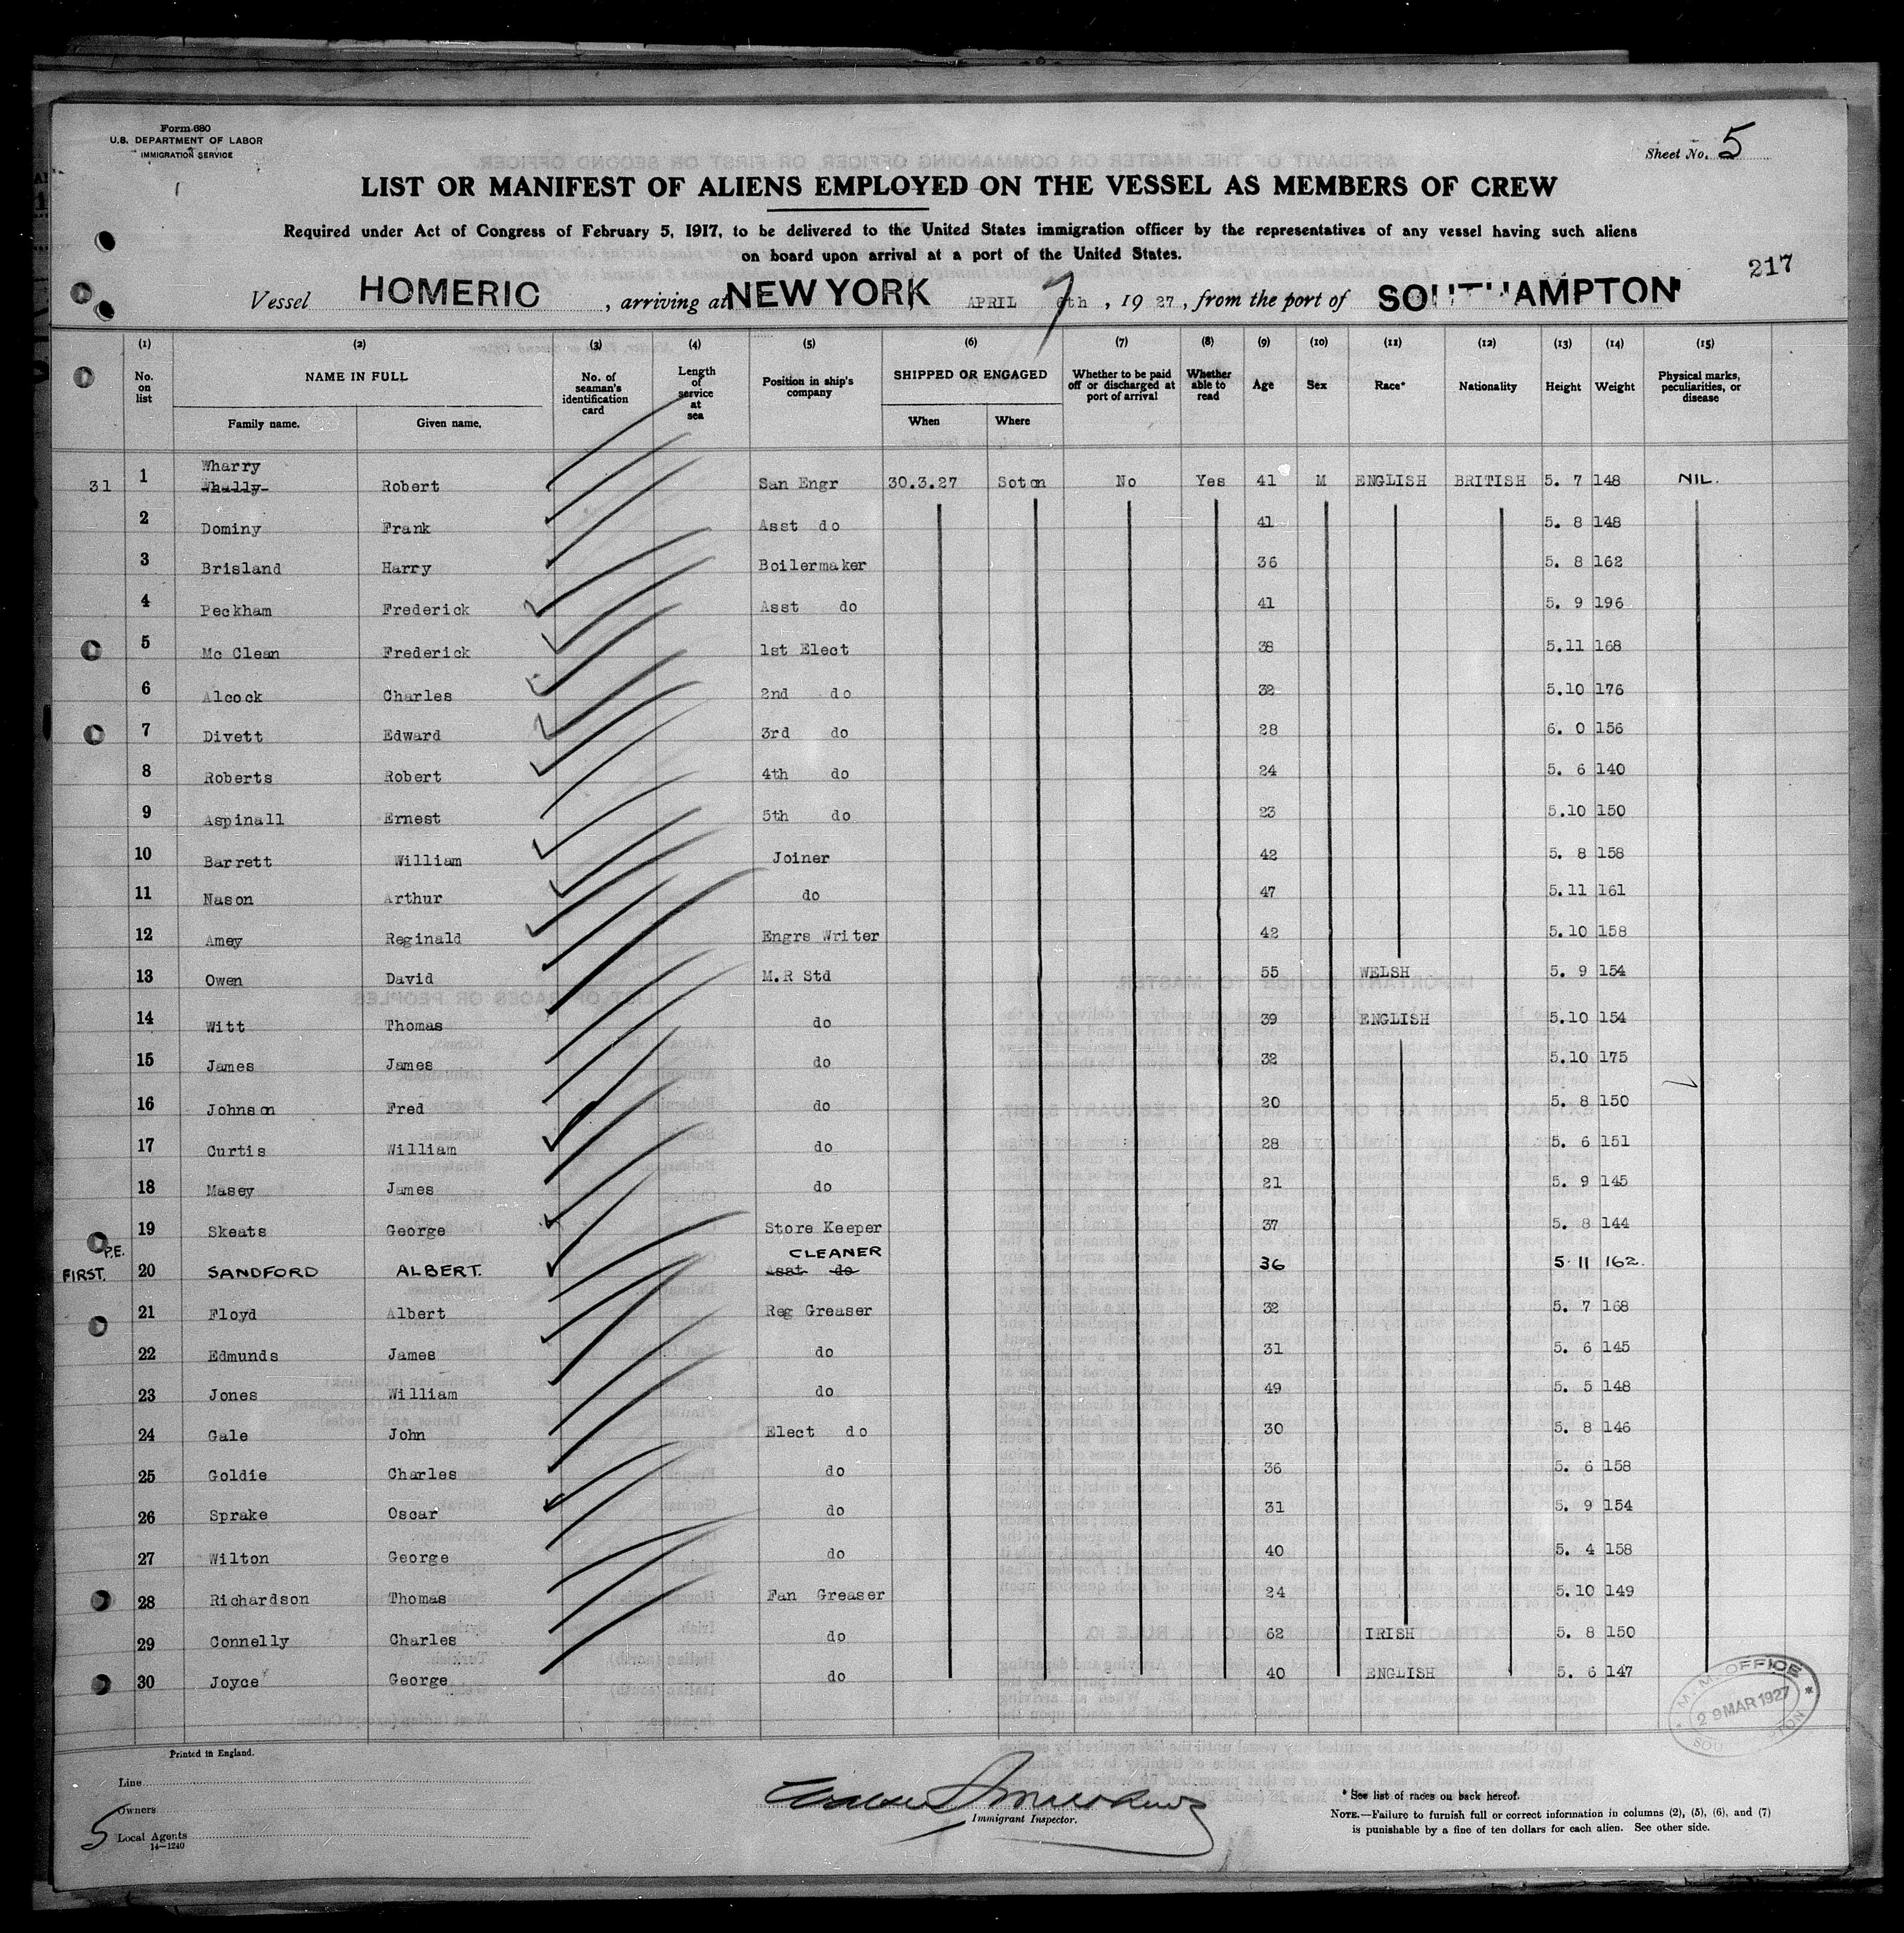 Form 680
U.S. DEPARTMENT OF LABOR
IMMIGRATION SERVICE
Sheet No. 5
LIST OR MANIFEST OF ALIENS EMPLOYED ON THE VESSEL AS MEMBERS OF CREW
Required under Act of Congress of February 5, 1917, to be delivered to the United States immigration officer by the representatives of any vessel having such aliens
on board upon arrival at a port of the United States.
217
Vessel HOMERIC, arriving at NEW YORK, APRIL 7 th, 1927, from the port of SOUTHAMPTON
(1) (2) (3) (4) (5) (6) (7) (8) (9) (10) (11) (12) (13) (14) (15)
No. on list NAME IN FULL Family name. Given name. No. of seaman's identification card Length of service at sea Position in ship's company SHIPPED OR ENGAGED When Where Whether to be paid off or discharged at port of arrival Whether able to read Age Sex Race* Nationality Height Weight Physical marks, peculiarities, or disease
Wharry
31 1 Whally Robert San Engr 30.3.27 Soton No Yes 41 M ENGLISH BRITISH 5. 7 148 NIL.
2 Dominy Frank Asst do 41 5. 8 148
3 Brisland Harry Boilermaker 36 5. 8 162
4 Peckham Frederick Asst do 41 5. 9 196
5 Mc Clean Frederick 1st Elect 38 5.11 168
6 Alcock Charles 2nd do 32 5.10 176
7 Divett Edward 3rd do 28 6. 0 156
8 Roberts Robert 4th do 24 5. 6 140
9 Aspinall Ernest 5th do 23 5.10 150
10 Barrett William Joiner 42 5. 8 158
11 Nason Arthur do 47 5.11 161
12 Amey Reginald Engrs Writer 42 5.10 158
13 Owen David M.R Std 55 WELSH 5. 9 154
14 Witt Thomas do 39 ENGLISH 5.10 154
15 James James do 32 5.10 175
16 Johnson Fred do 20 5. 8 150
17 Curtis William do 28 5. 6 151
18 Masey James do 21 5. 9 145
19 Skeats George Store Keeper 37 5. 8 144
P.E. CLEANER
FIRST. 20 SANDFORD ALBERT. Asst do 36 5 11 162.
21 Floyd Albert Reg Greaser 32 5. 7 168
22 Edmunds James do 31 5. 6 145
23 Jones William do 49 5. 5 148
24 Gale John Elect do 30 5. 8 146
25 Goldie Charles do 36 5. 6 158
26 Sprake Oscar do 31 5. 9 154
27 Wilton George do 40 5. 4 158
28 Richardson Thomas Fan Greaser 24 5.10 149
29 Connelly Charles do 62 IRISH 5. 8 150
30 Joyce George do 40 ENGLISH 5. 6 147
M. M. OFFICE
29 MAR 1927
Printed in England.
Line
Owners
5 Local Agents
14—1240
Immigrant Inspector.
* See list of races on back hereof.
NOTE.—Failure to furnish full or correct information in columns (2), (5), (6), and (7)
is punishable by a fine of ten dollars for each alien. See other side.